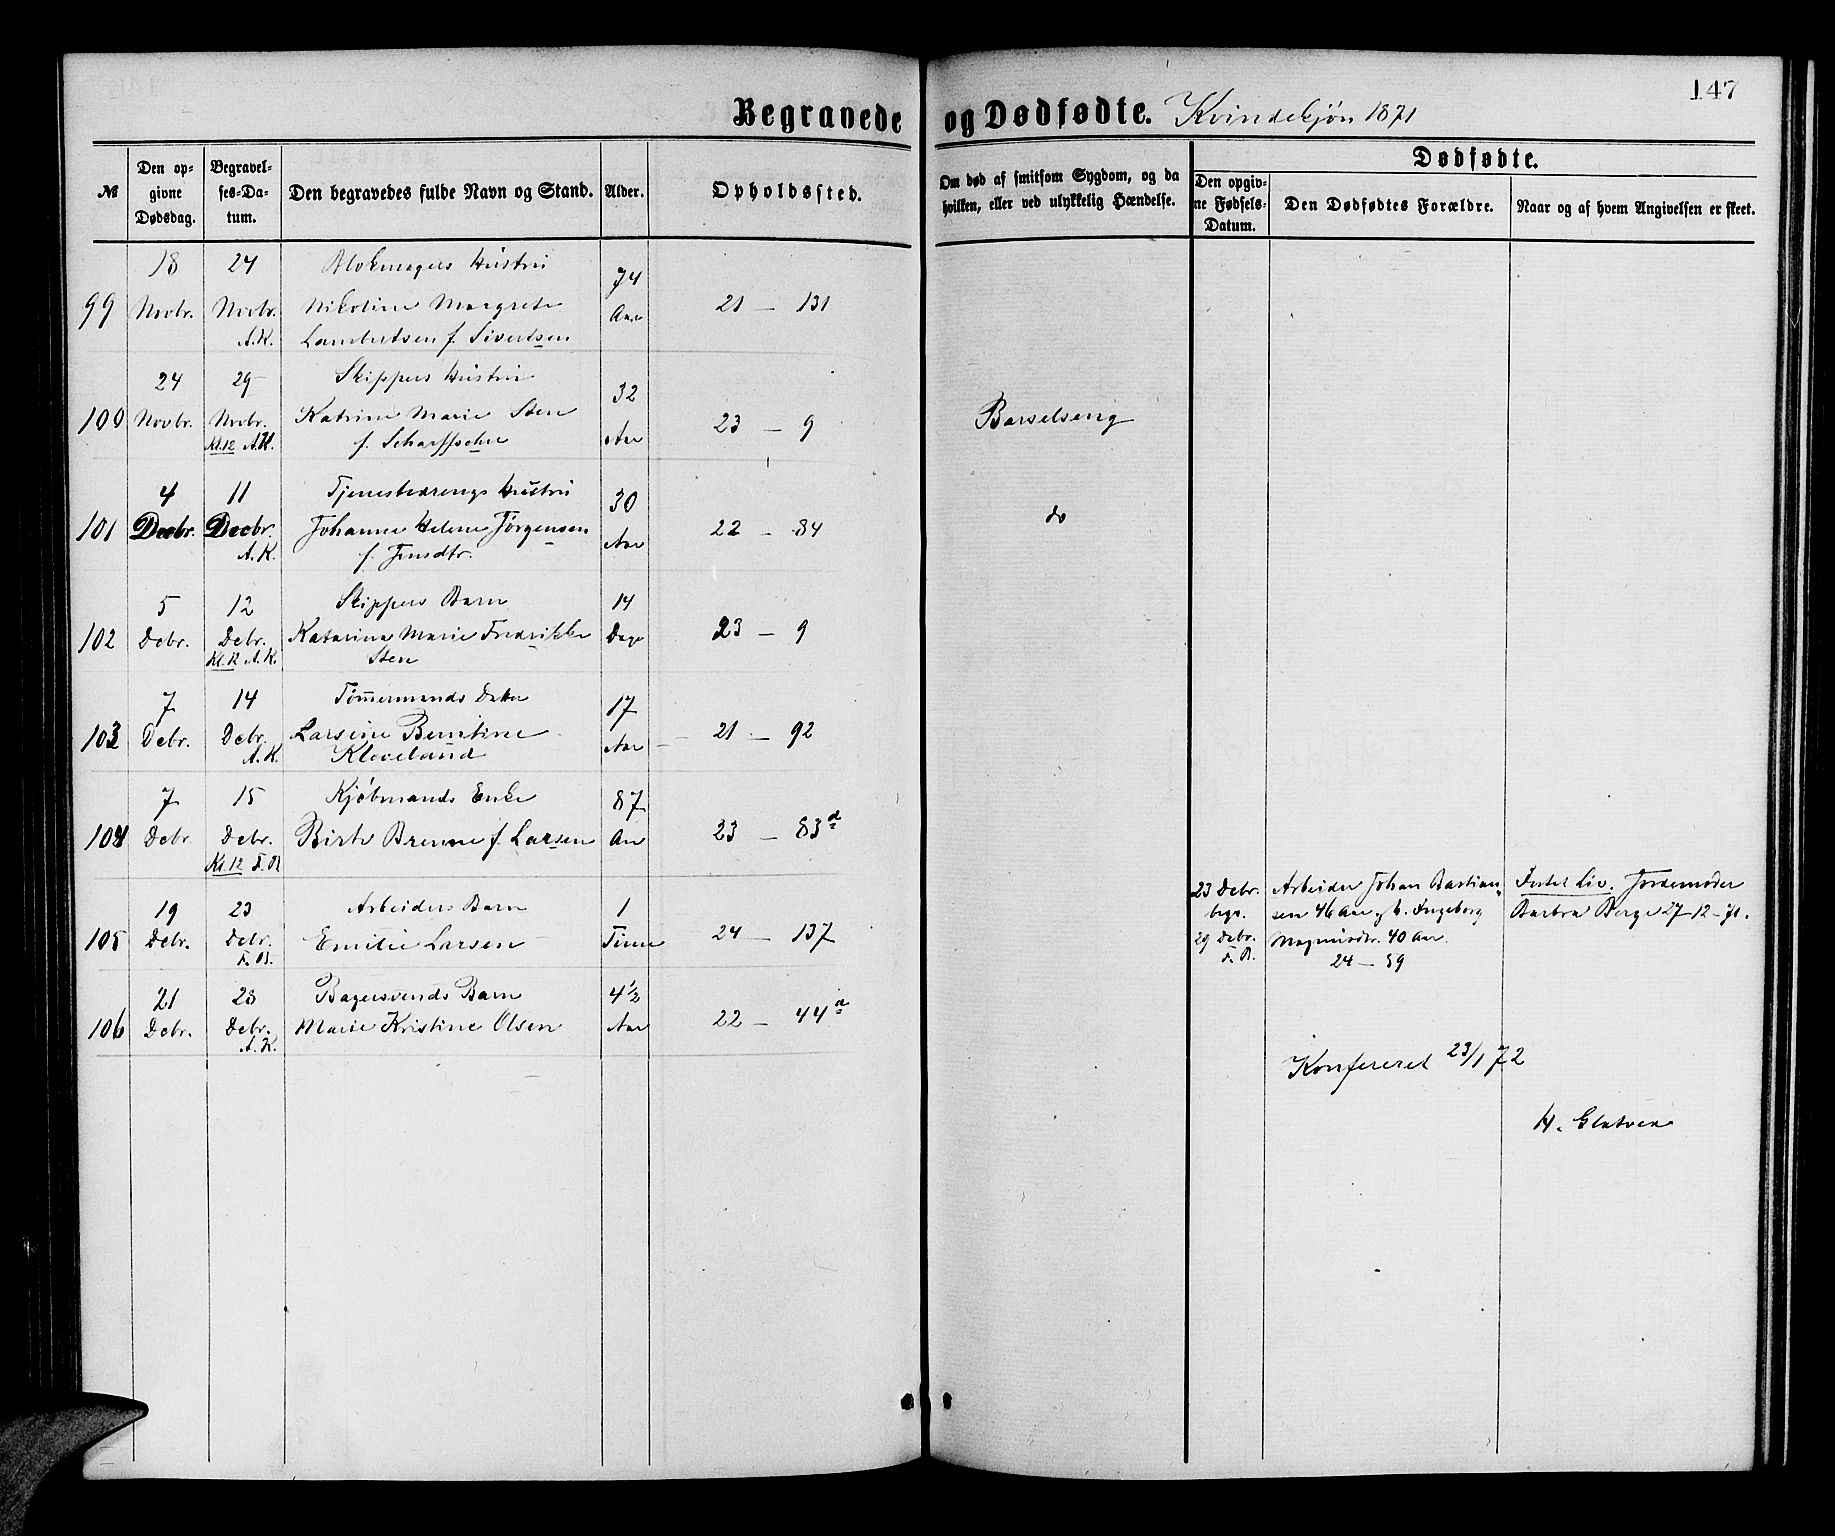 147
Begravede og Dødfødte. Kvindekjøn 1871
№
Den op-
givne
Dødsdag.
Begravel-
ses-Da-
tum.
Den begravedes fulde Navn og Stand.
Alder.
Opholdssted.
Om død af smitsom Sygdom, og da
hvilken, eller ved ulykkelig Hændelse.
Dødfødte.
Den opgiv-
ne Fødsels-
Datum.
Den Dødfødtes Forældre.
Naar og af hvem Angivelsen er skeet.
18 24 Blokmagers Hustru 74
99 Novbr. Novbr. Nikoline Margrete Aar 21 — 131
A.K. Lambertsen f. Sivertsen
24 29 Skippers Hustru 32
100 Novbr. Novbr. Katrine Marie Sten 23 — 9 Barselseng
Kl.12 A.K. f. Scharffscher Aar
4 11 Tjenestedrengs Hustru 30
101 Decbr. Decbr. Johanne Helene Jørgensen 22 — 84 do
A.K. f. Jensdtr. Aar
5 12 Skippers Barn 14
102 Debr. Debr. Katarina Marie Fredrikke Dage 23 — 9
Kl.12 A.K. Sten
7 14 Tømermands Datter 17
103 Debr. Debr. Larsine Berntine Aar 21 — 92
A.K. Kleveland
7 15 Kjøbmands Enke 87
104 Debr Debr. Birte Brenne f. Larsen Aar 23 — 83d
Kl.12 F.B.
19 23 Arbeiders Barn 1
105 Debr. Debr. Emilie Larsen Time 24 — 137
F.B.
23 Debr. Arbeider Johan Bastian- Intet Liv. Jordemoder
begr. sen 46 Aar og h. Ingeborg Barbra Berge 27-12-71.
29 Debr. Magnusdtr. 40 Aar.
F.B. 24 — 89
21 28 Bagersvends Barn 4½
106 Debr. Debr. Marie Kristine Olsen Aar 22 — 44a
A.K.
Konfereret 23/1 72
H.